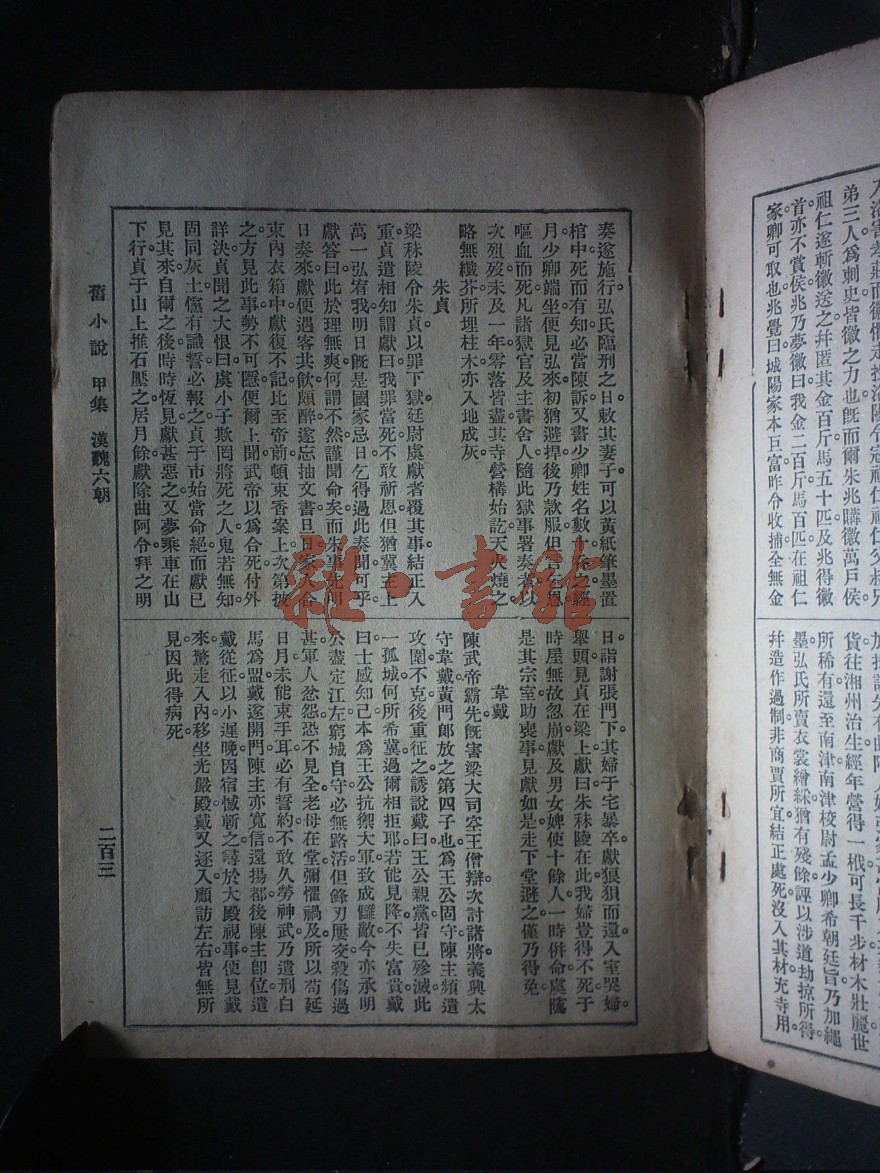 弟三人爲刺史皆徽之力也。旣而爾朱兆購徽萬戶侯。
祖仁遂斬徽送之。幷匿其金百斤馬五十匹。及兆得徽
首。亦不賞侯。兆乃夢徽曰。我金二百斤馬百匹在祖仁
家。卿可取也。兆覺曰。城陽家本巨富。昨令收捕。全無金
貨往湘州治生。經年營得一栰。可長千步。材木壯麗。世
所稀有。還至南津。南津校尉孟少卿希朝廷旨。乃加繩
墨。弘氏所賣衣裳繒綵。猶有殘餘。誣以涉道劫掠所得。
幷造作過制。非商賈所宜。結正處死。沒入其材充寺用。
奏遂施行。弘氏臨刑之日。敕其妻子。可以黃紙筆墨置
棺中。死而有知。必當陳訴。又書少卿姓名數十吞之。經
月。少卿端坐。便見弘來。初猶避捍。後乃款服。但言乞恩。
嘔血而死。凡諸獄官及主書舍人。隨此獄事署奏者。以
次殂歿。未及一年。零落皆盡。其寺營構始訖。天火燒之。
略無纖芥。所埋柱木亦入地成灰。
朱貞
梁秣陵令朱貞以罪下獄。廷尉虞獻者覆其事。結正入
重。貞遣相知謂獻曰。我罪當死。不敢祈恩。但猶冀主上
萬一弘宥。我明日旣是國家忌日。乞得過此奏聞可乎。
獻答曰。此於理無爽。何謂不然。謹聞命矣。而朱事先明
日奏來。獻便遇客共飮頗醉。遂忘抽文書。旦日家人合
束內衣箱中。獻復不記。比至帝前。頓束香案上。次第披
之。方見此事。勢不可隱。便爾上聞。武帝以爲合死。付外
詳決。貞聞之。大恨曰。虞小子欺罔將死之人。鬼若無知。
固同灰土。儻有識。誓必報之。貞于市始當命絕。而獻已
見其來。自爾之後。時時恆見。獻甚惡之。又夢乘車在山
下行。貞于山上推石壓之。居月餘。獻除曲阿令。拜之明
日。詣謝張門下。其婦于宅暴卒。獻狼狽而還。入室哭婦。
舉頭見貞在梁上。獻曰。朱秣陵在此。我婦豈得不死。于
時屋無故忽崩。獻及男女婢使十餘人一時併命。虞隲
是其宗室。助喪事。見獻如是。走下堂避之。僅乃得免。
韋戴
陳武帝霸先旣害梁大司空王僧辯。次討諸將。義興太
守韋戴。黃門郎放之第四子也。爲王公固守。陳主頻遣
攻圍不克。後重征之。誘說戴曰。王公親黨。皆已殄滅。此
一孤城。何所希冀。過爾相拒耶。若能見降。不失富貴。戴
曰。士感知己。本爲王公抗禦大軍。致成讎敵。今亦承明
公盡定江左。窮城自守。必無路活。但鋒刃屢交。殺傷過
甚。軍人忿怨。恐不見全。老母在堂。彌懼禍及。所以苟延
日月。未能束手耳。必有誓約。不敢久勞神武。乃遣刑白
馬爲盟。戴遂開門。陳主亦寬信還揚都。後陳主卽位。遣
戴從征。以小遲晚。因宿憾斬之。尋於大殿視事。便見戴
來。驚走入內。移坐光嚴殿。戴又逐入。顧訪左右。皆無所
見。因此得病死。
舊小說 甲集 漢魏六朝
二百三
雜·書館